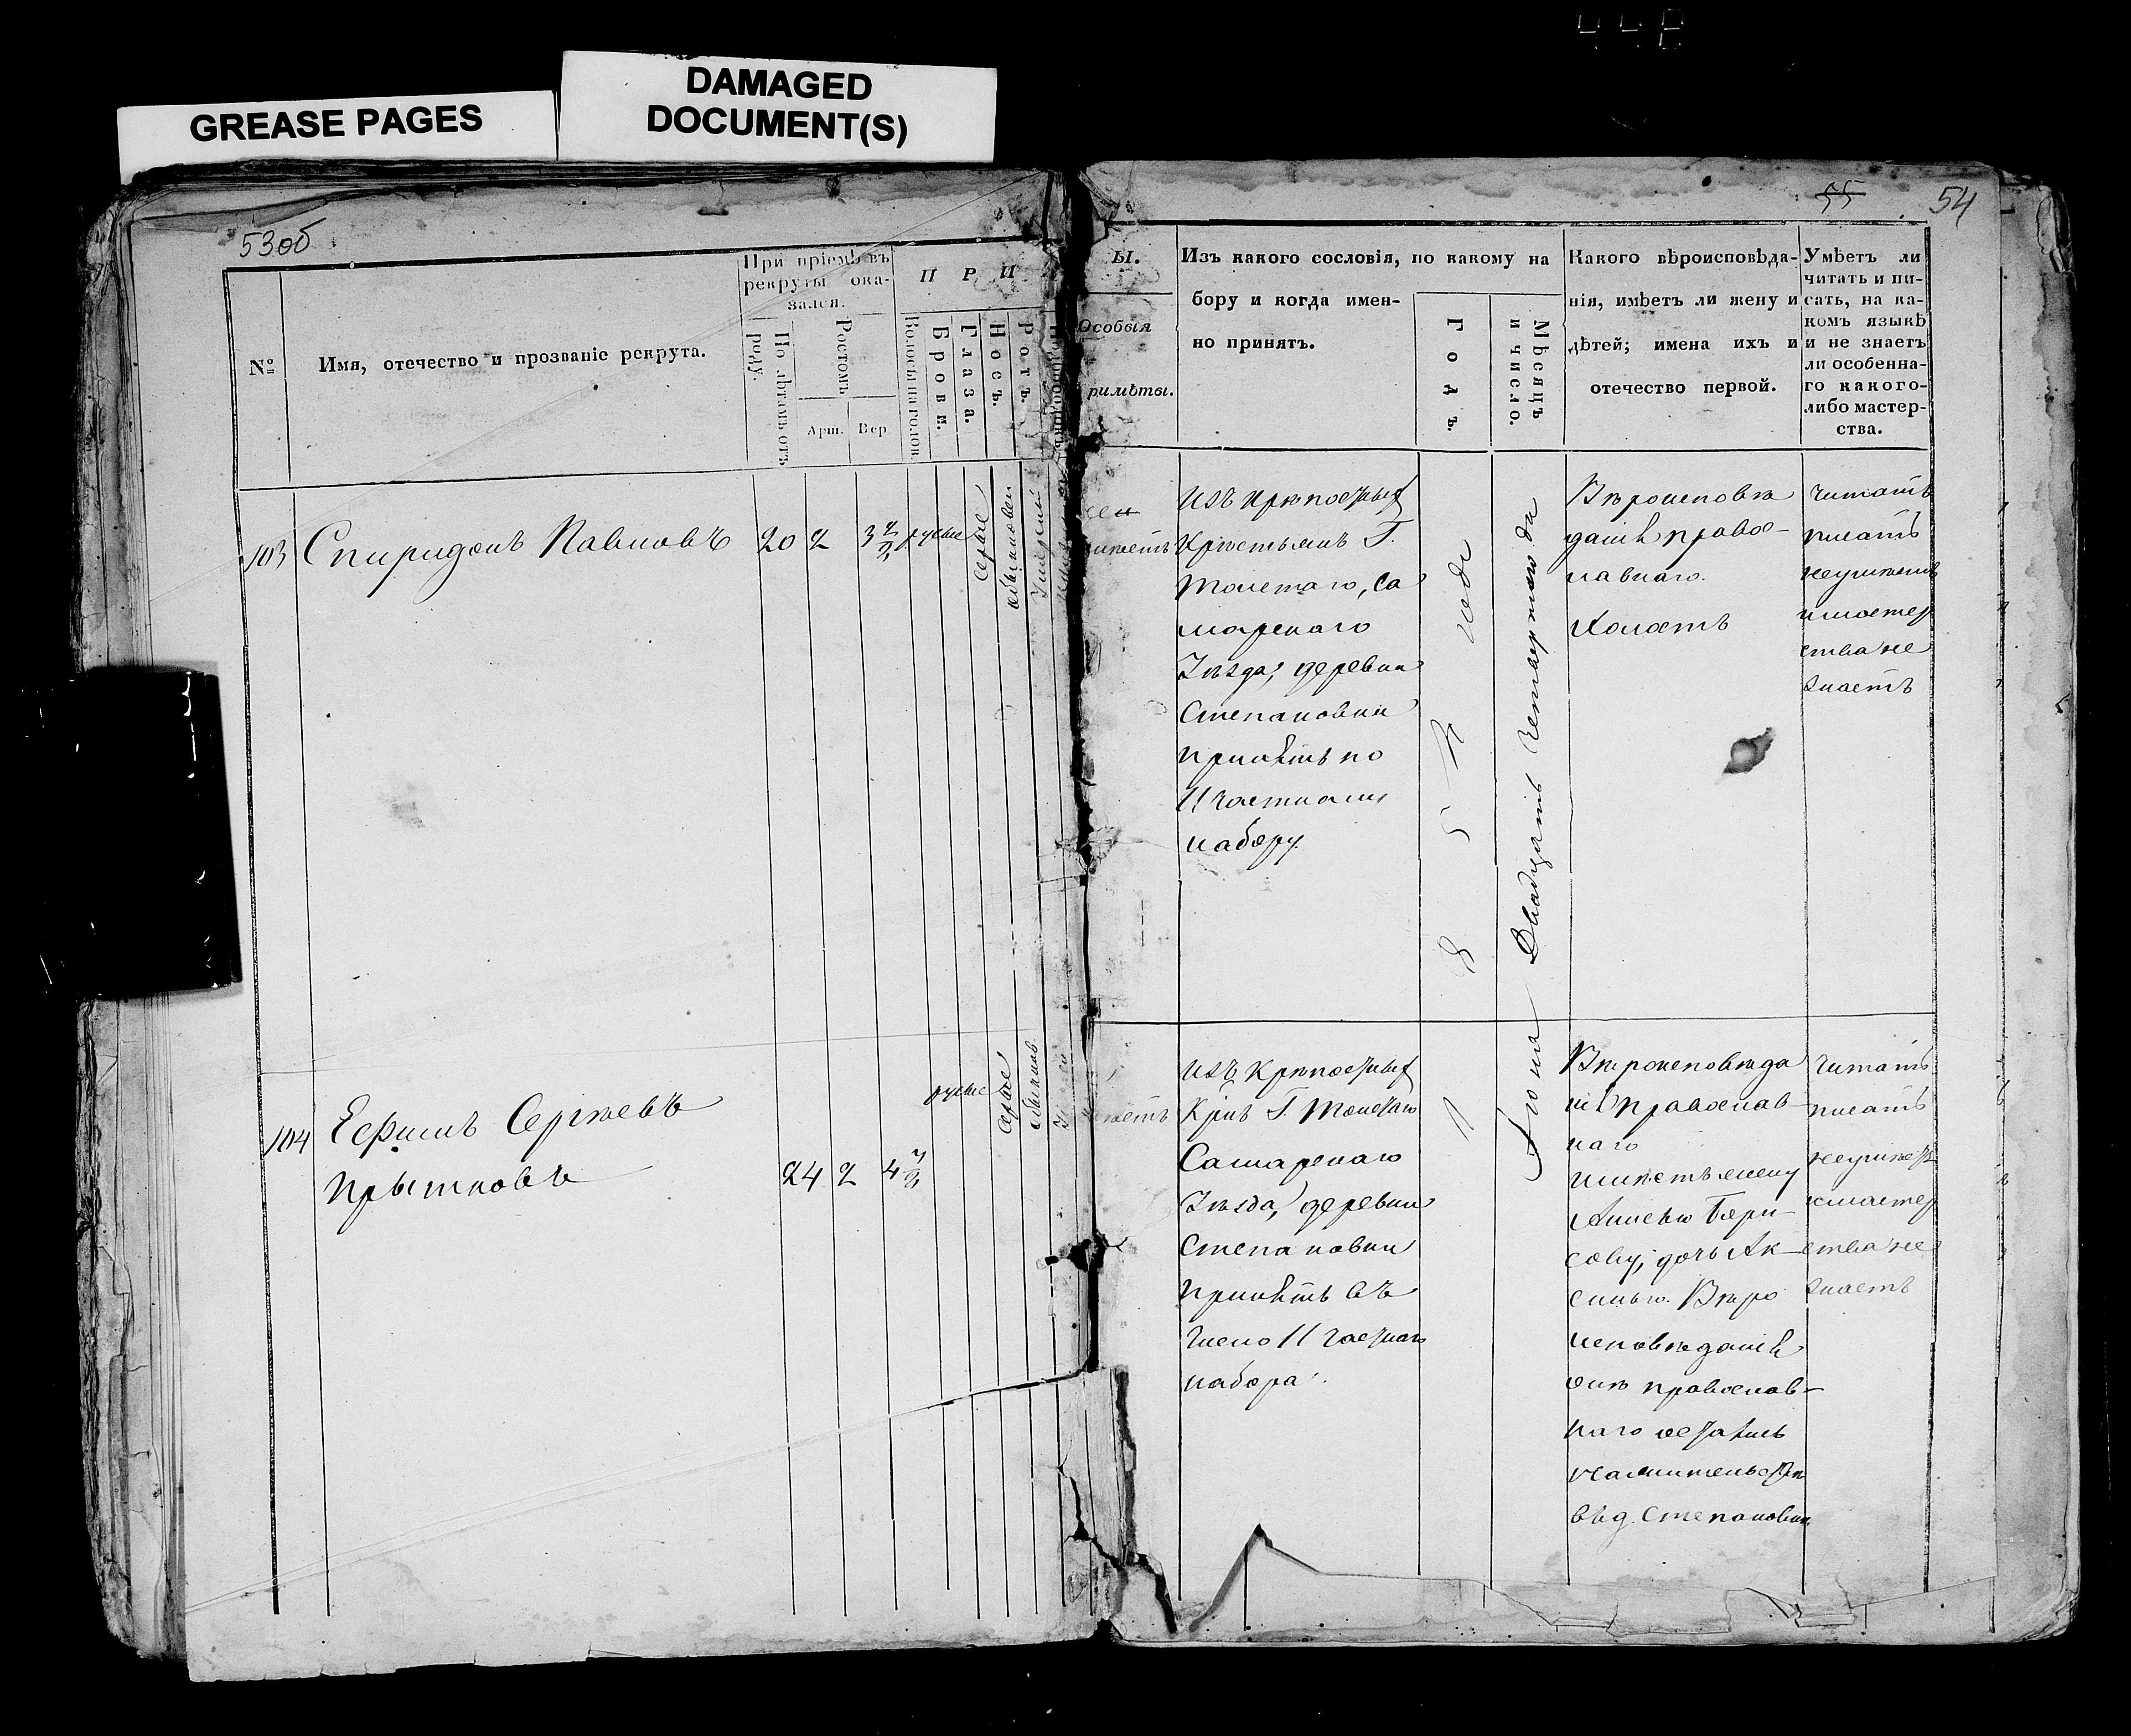 GREASE PAGES
DAMAGED
DOCUMENT(S)
53об
55
54
№
Имя, отечество и прозваніе рекрута.
При пріемѣ въ
рекруты ока-
зался.
По лѣтамъ отъ
роду.
Ростомъ
Арш.
Вер.
П Р И
Волосы на голов.
Брови.
Глаза.
Носъ.
Ротъ.
Ы.
Особыя
примѣты.
Изъ какого сословія, по какому на
бору и когда имен-
но принятъ.
Годъ.
Мѣсяцъ
и число.
Какого вѣроисповѣда-
нія, имѣетъ ли жену и
дѣтей; имена ихъ и
отечество первой.
Умѣетъ ли
читать и пи-
сать, на ка-
комъ языкѣ
и не знаетъ
ли особенна-
го какого-
либо мастер-
ства.
103
Спиридонъ Павловъ
20
2
3
русые
серые
обыкновен
Изъ крѣпостных
Крестьянъ Г.
Толстаго, Са
марскаго
Уѣзда, деревни
Степановки
принятъ по
11 частному
набору.
185
года
Іюня Двадцать четвертого дня
Вѣроисповѣ
данія право-
славнаго.
Холостъ
читать
писать
неумѣетъ
имастер
ства не
знаетъ
104
Ефимъ Сергѣевъ
Прытковъ
24
2
4
русые
серые
Изъ крѣпостных
Крѣнъ Г. Толстаго
Самарскаго
Уѣзда, деревни
Степановки
принятъ въ
число 11 частнаго
набора.
Вѣроисповѣда
нія православ-
наго
имѣетъ жену
Анисью Бори-
сову, дочь Ак-
синью. Вѣро
исповѣданія
онѣ православ-
наго
жительство
въ д. Степановки
читать
писать
неумѣетъ
имастер
ства не
знаетъ